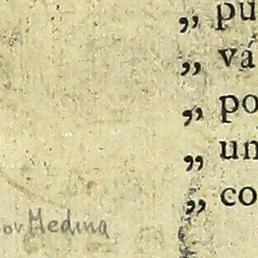 „ pu
„ vá
„ po
„ un
„ co
por Medina